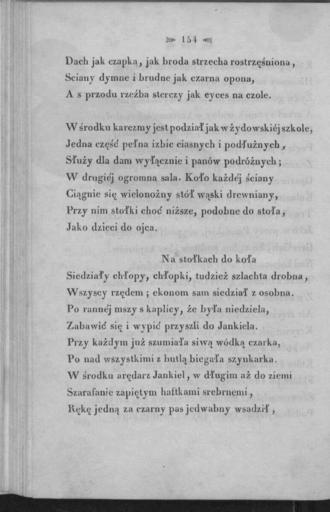 154
Dach jak czapka, jak broda strzecha rostrzęśniona,
Sciany dymne i brudne jak czarna opona,
A s przodu rzeźba sterczy jak cyces na czole.
W środku karczmy jest podział jak w żydowskiéj szkole,
Jedna część pełna izbic ciasnych i podłużnych,
Służy dla dam wyłącznie i panów podróżnych;
W drugiéj ogromna sala. Koło każdéj ściany
Ciągnie się wielonożny stół wąski drewniany,
Przy nim stołki choć niższe, podobne do stoła,
Jako dzieci do ojca.
Na stołkach do koła
Siedziały chłopy, chłopki, tudzież szlachta drobna,
Wszyscy rzędem; ekonom sam siedział z osobna.
Po rannéj mszy s kaplicy, że była niedziela,
Zabawić się i wypić przyszli do Jankiela.
Przy każdym już szumiała siwą wódką czarka,
Po nad wszystkimi z butlą biegała szynkarka.
W środku arędarz Jankiel, w długim aż do ziemi
Szarafanie zapiętym haftkami srebrnemi,
Rękę jedną za czarny pas jedwabny wsadził,